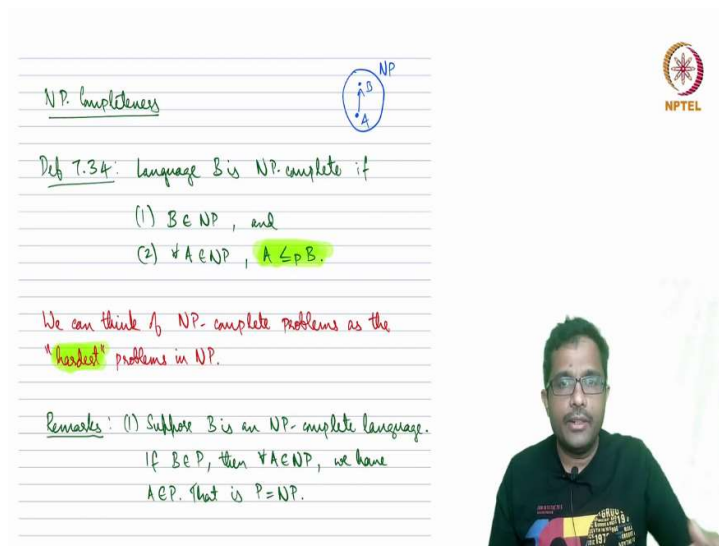 NP
B
A
NP-Completeness
Def 7.34: Language B is NP-complete if
(1) B ∈ NP, and
(2) ∀A ∈ NP, A ≤p B.
We can think of NP-complete problems as the
"hardest" problems in NP.
Remarks: (1) Suppose B is an NP-complete language.
If B ∈ P, then ∀A ∈ NP, we have
A ∈ P. That is P = NP.
NPTEL